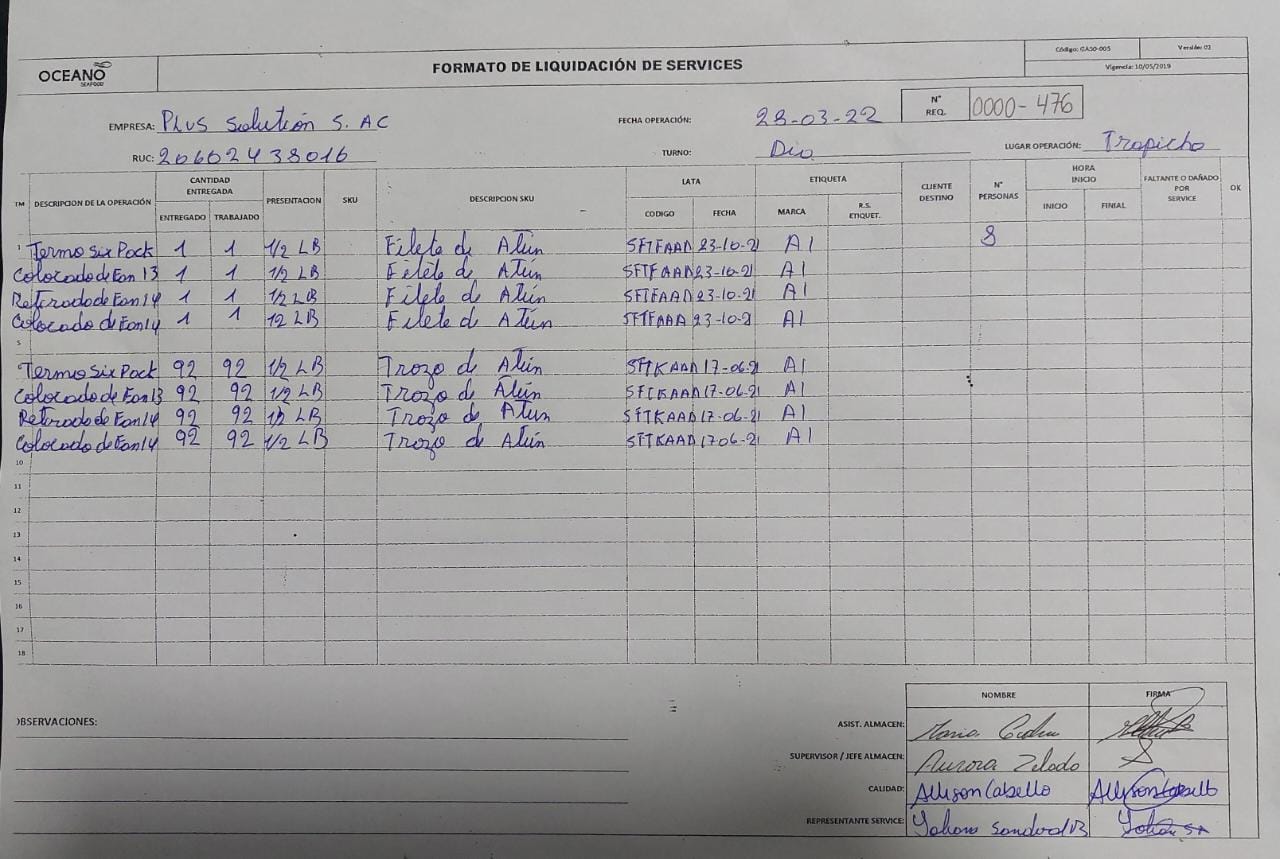 OCEANO
SEAFOOD
FORMATO DE LIQUIDACIÓN DE SERVICES
Código: GA50-005
Versión: 02
Vigencia: 10/05/2019
EMPRESA: Plus Solution S. AC
FECHA OPERACIÓN: 28-03-22
N° REQ. 0000-476
RUC: 20602438016
TURNO: Dia
LUGAR OPERACIÓN: Trapicho
TM DESCRIPCION DE LA OPERACIÓN CANTIDAD ENTREGADA PRESENTACION SKU DESCRIPCION SKU LATA ETIQUETA CLIENTE DESTINO N° PERSONAS HORA INICIO FALTANTE O DAÑADO POR SERVICE OK
ENTREGADO TRABAJADO CODIGO FECHA MARCA R.S. ETIQUET. INICIO FINIAL
1 Termo Six Pack 1 1 1/2 LB Filete de Atún SFTFAAD 23-10-21 A1 8
Colocado de Ean 13 1 1 1/2 LB Filete de Atún SFTFAAD 23-10-21 A1
Retirado de Ean14 1 1 1/2 LB Filete de Atún SFTFAAD 23-10-21 A1
Colocado de Ean14 1 1 12 LB Filete de Atún SFTFAAD 23-10-21 A1
5
6 Termo Six Pack 92 92 1/2 LB Trozo de Atún SFTKAAD 17-06-21 A1
Colocado de Ean13 92 92 1/2 LB Trozo de Atún SFTKAAD 17-06-21 A1
Retirado de Ean14 92 92 1/2 LB Trozo de Atun SFTKAAD 17-06-21 A1
Colocado de Ean14 92 92 1/2 LB Trozo de Atún SFTKAAD 1706-21 A1
10
11
12
13
14
15
16
17
18
NOMBRE FIRMA
OBSERVACIONES:
ASIST. ALMACEN: Maria
SUPERVISOR / JEFE ALMACEN: Aurora Zelado
CALIDAD: Allison Cabello
REPRESENTANTE SERVICE: Yohana Sandoval B